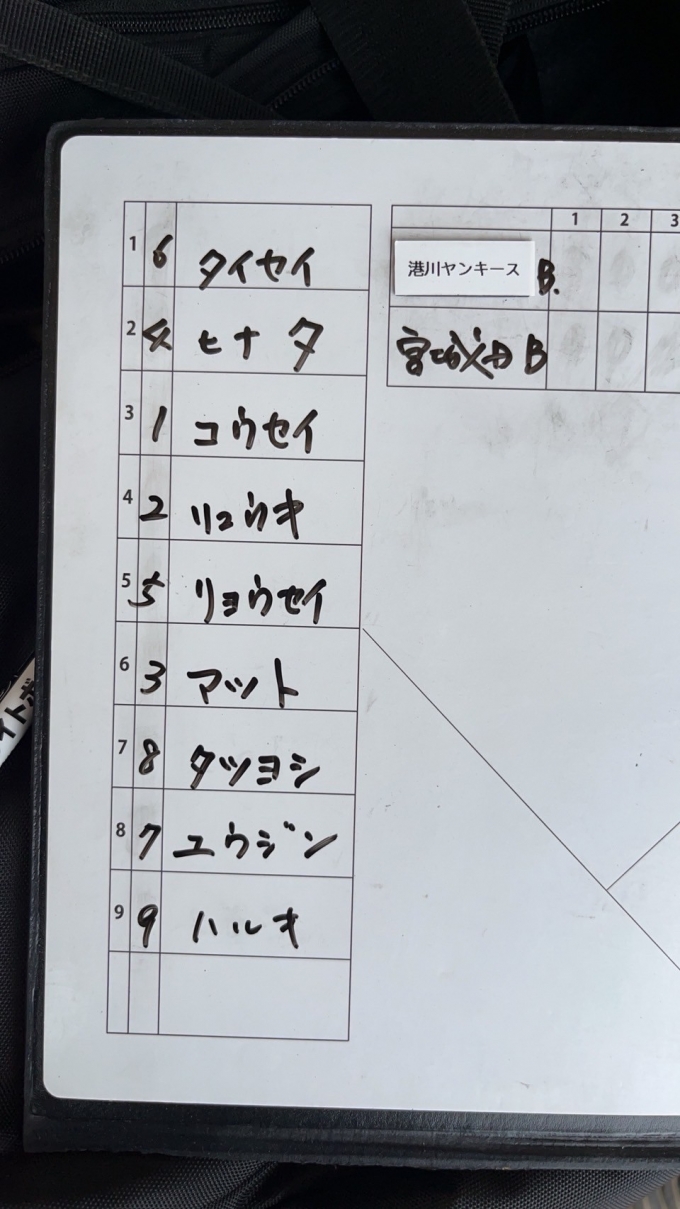 1 6 タイセイ
2 4 ヒナタ
3 1 コウセイ
4 2 リュウキ
5 5 リョウセイ
6 3 マット
7 8 タツヨシ
8 7 ユウジン
9 9 ハルキ
1 2 3
港川ヤンキース B.
宮城 B
イトボ